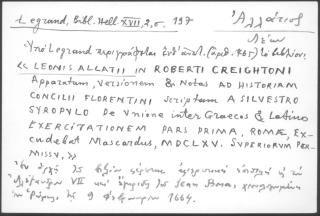 Legrand, Bibl. Hell. XVII, 2, σ. 197
Ἀλλάτιος
Λέων
Ὑπὸ Legrand περιγράφεται (ἀριθ. 465) τὸ βιβλίον:
« LEONIS ALLATII IN ROBERTI CREIGHTONI
Apparatum, versionem & Notas AD HISTORIAM
CONCILII FLORENTINI scriptam A SILVESTRO
SYROPULO De Unione inter Graecos & Latinos
EXERCITATIONEM PARS PRIMA, ROMÆ, Ex-
cudebat Mascardus, MDCLXV. SUPERIORUM PER-
MISSU. »
Ἐν ἀρχῇ τὸ βιβλίον
Ἀλέξανδρον VII καὶ τοῦ Jean Bona,
ἐν Ῥώμῃ τῇ 9 Φεβρουαρίου 1664.